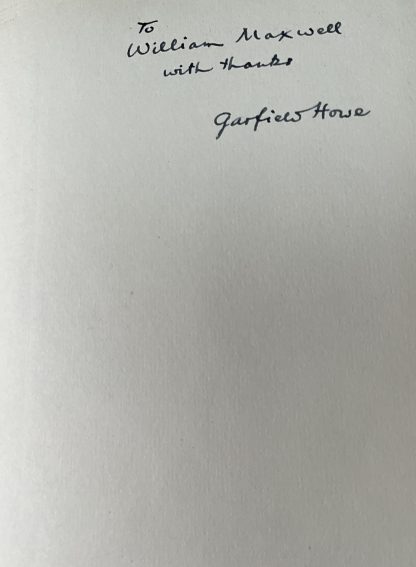 To
William Maxwell
with thanks
Garfield Howe